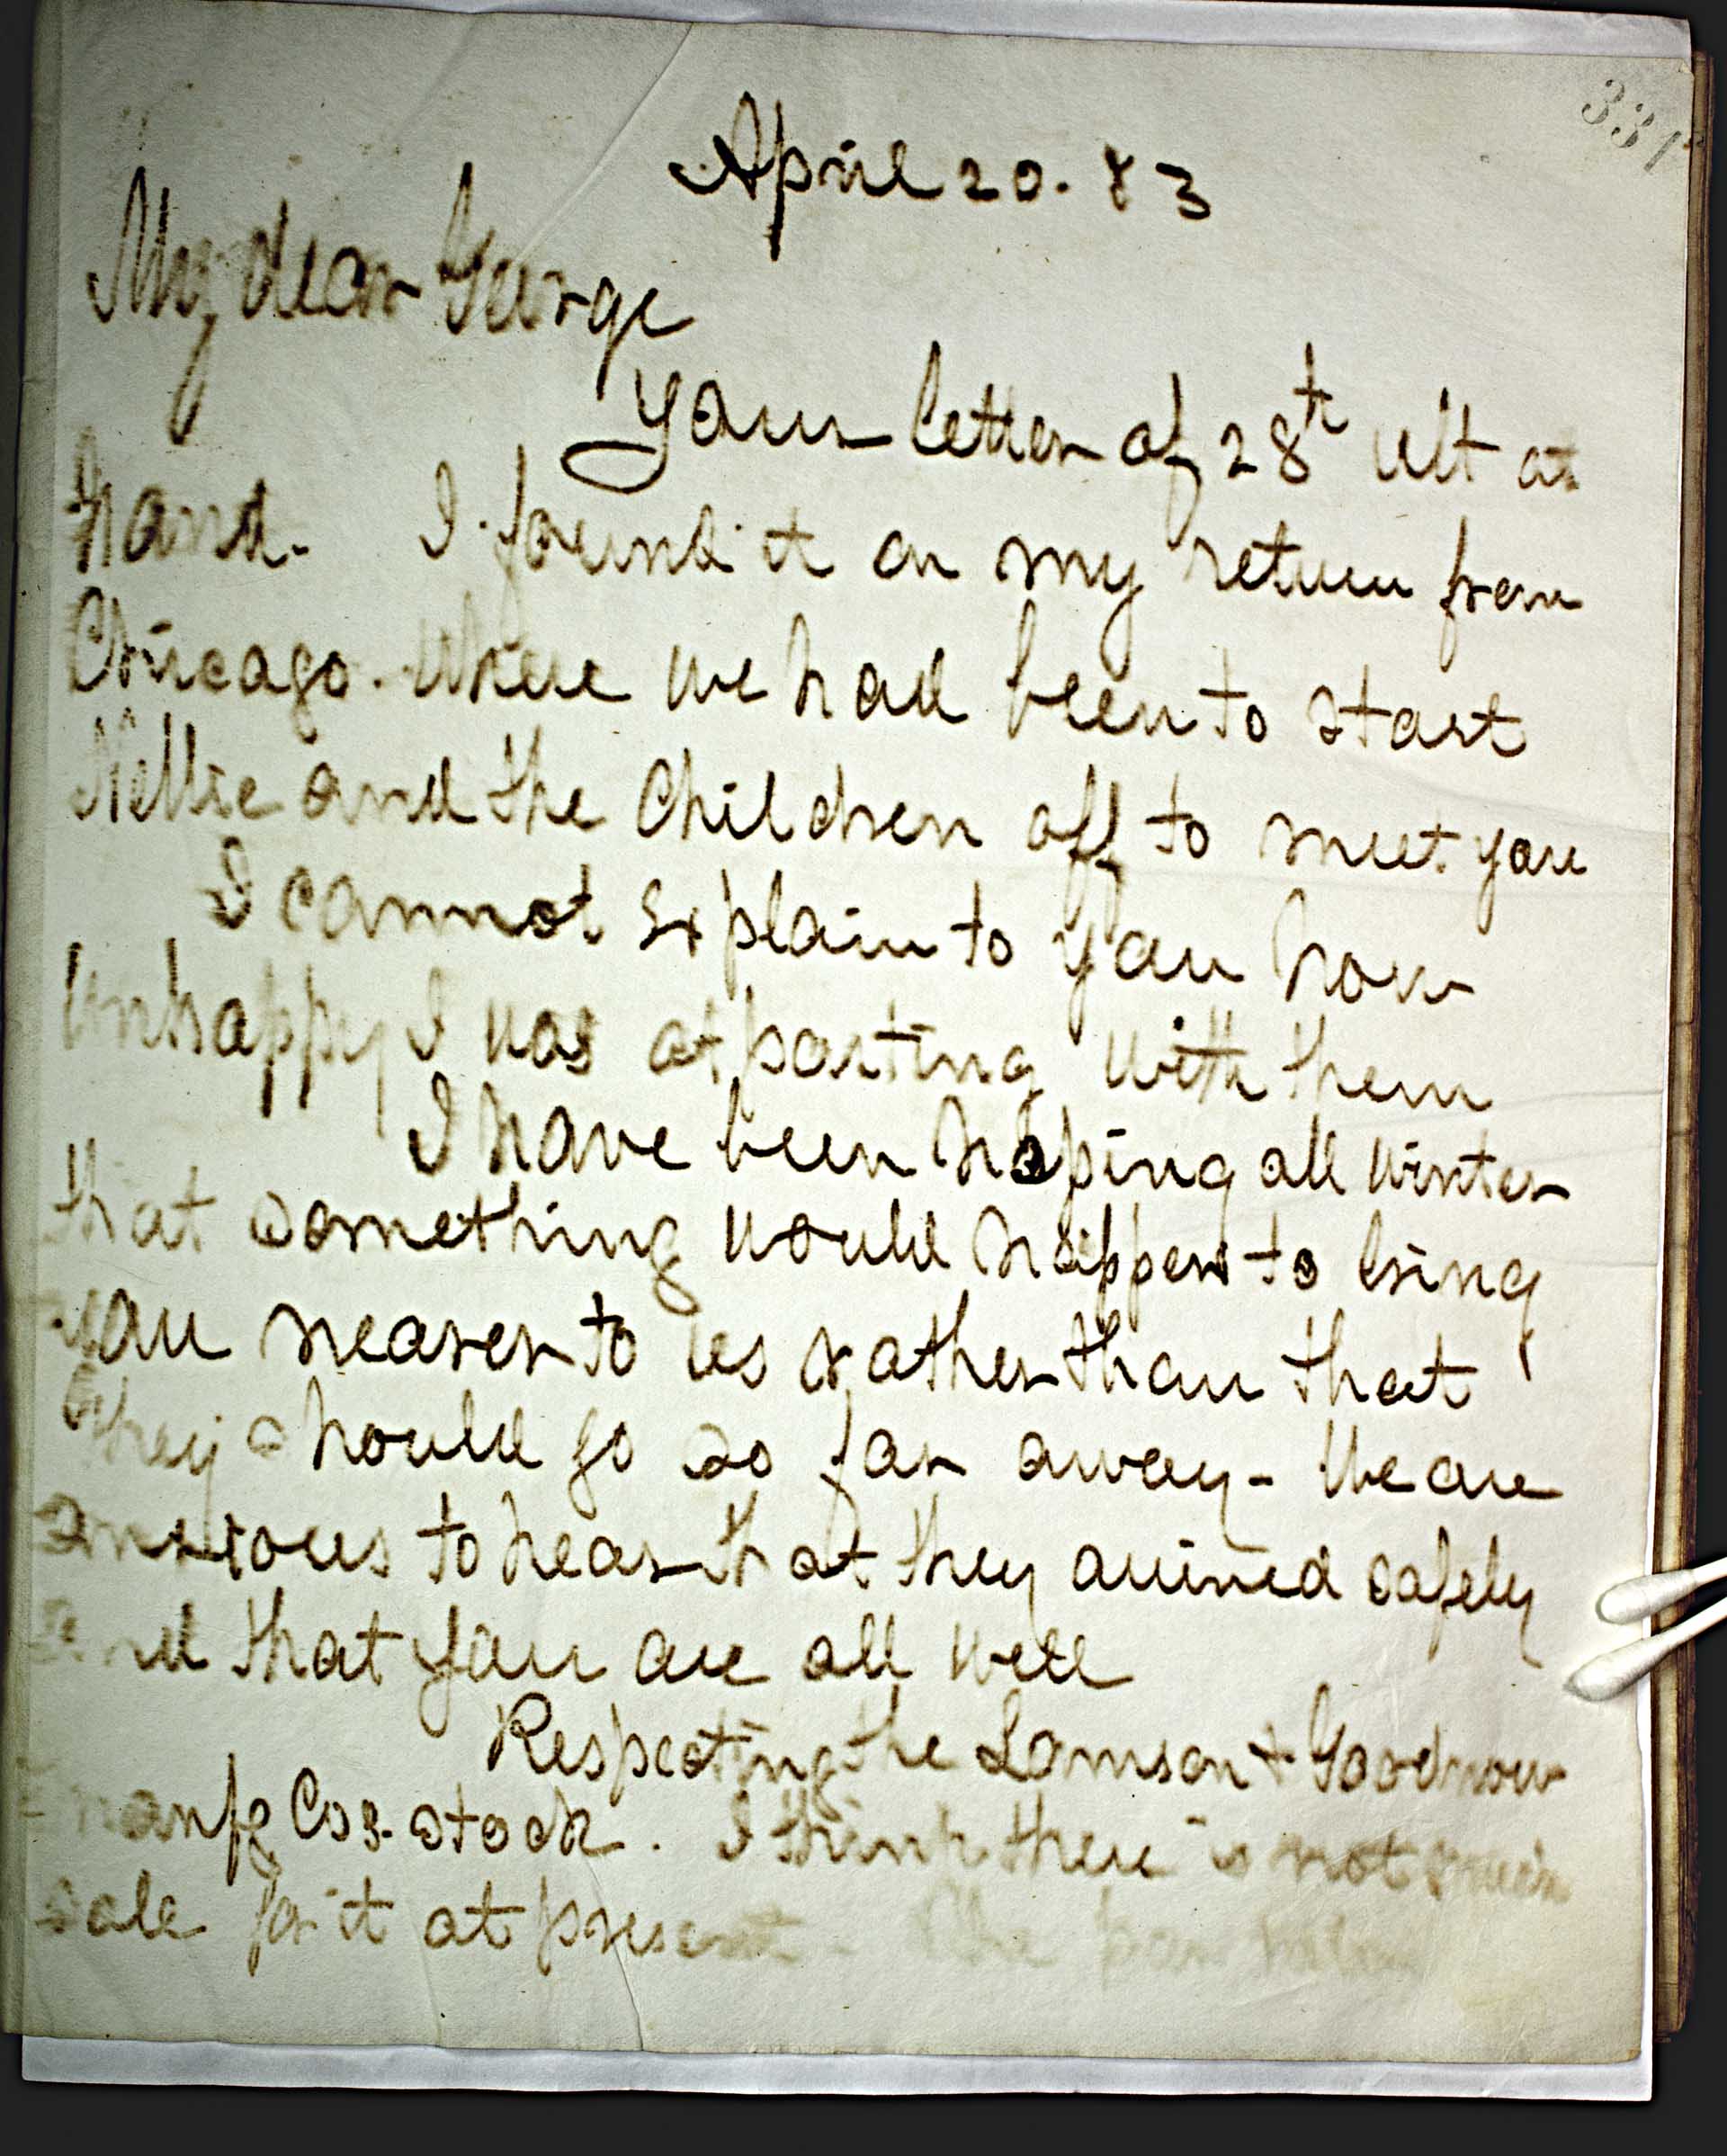 331
April 20. 83
My dear George
Your letter of 28th ult at
hand. I found it on my return from
Chicago. where we had been to start
Nellie and the Children off to meet you
I cannot explain to you how
unhappy I was at parting with them
I have been hoping all winter
that something would happen to bring
you nearer to us rather than that
they should go so far away - We are
anxious to hear that they arrived safely
and that you are all well
Respecting the Lamson & Goodnow
manfg Cos. stock. I think there is not much
sale for it at present - The par value